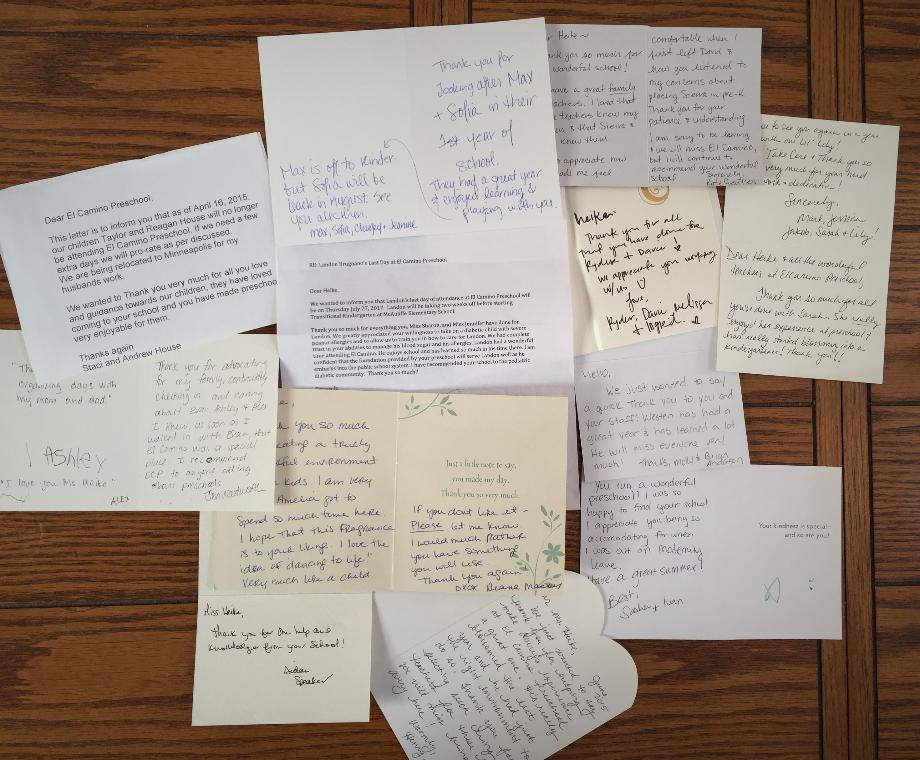 Dear El Camino Preschool,
This letter is to inform you that as of April 16, 2015,
our children Taylor and Reagan House will no longer
be attending El Camino Preschool. If we need a few
extra days we will pro-rate as per discussed.
We are being relocated to Minneapolis for my
husbands work.
We wanted to Thank you very much for all you love
and guidance towards our children, they have loved
coming to your school and you have made preschoo
very enjoyable for them.
Thanks again
Staci and Andrew House
Thank you for
looking after Max
+ Sofia in their
1st year of
school.
They had a great year
& enjoyed learning &
playing with you.
Max is off to Kinder
but Sofia will be
back in August. See
you all then.
Max, Sofia, + Jeanne
Heike ~
you so much for
wonderful school!
have a great family
teachers. I love that
teachers know my
& that Sierra &
know them
appreciate how
me feel
comfortable when I
first left David &
how you listened to
my concerns about
placing Sierra in pre-K
Thank you for your
patience & understanding
I am sorry to be leaving
& we will miss El Camino,
but I will continue to
recommend your wonderful
school
Sincerely,
to see you again in a year
with our lil' Lily!
Take Care & Thank you so
very much for your hard
work + dedication!
Sincerely,
Mark, Jessica
Jakob, Sarah + Lily!
Dear Heike & all the wonderful
teachers of El Camino Preschool,
Thank you so much for all
you've done with Sarah. She really
enjoyed her experience at preschool &
has really blossomed into a
kindergartener! Thank you!
Heike,
Thank you for all
that you have done for
Ryder + Davie
We appreciate you working
w/us
Love,
Ryder, Davie, Melissa
+
RE: London Brugnano's Last Day at El Camino Preschool
Dear Heike,
We wanted to inform you that London's last day of attendance at El Camino Preschool will
be on Thursday July 27, 2017. London will be taking two weeks off before starting
Transitional Kindergarten at McAuliffe Elementary School.
Thank you so much for everything you, Miss Sharon, and Miss Jennifer have done for
London. We greatly appreciated your willingness to take on a diabetic child with severe
peanut allergies and to allow us to train you in how to care for London. We had complete
trust in your abilities to manage his blood sugar and his allergies. London had a wonderful
time attending El Camino. He enjoys school and has learned so much in his time there. I am
confident that the foundation provided by your preschool will serve London well as he
embarks into the public school system. I have recommended your school to the pediatric
diabetic community. Thank you so much!
organizing days with
my mom and dad."
Ashley
"I love you Ms Heike"
Alex
Thank you for
for my family, continually
checking in and caring
about Evan, Ashley + Alex
I knew as soon as I
walked in with Evan, that
El Camino was a special
place. I recommend
ECP to anyone asking
about preschools
you so much
creating a truely
environment
kids. I am very
Amelia got to
Spend so much time here
I hope That this Fragrance
is to your liking. I love the
idea of dancing to life"
Very much like a child
Just a little note to say,
you made my day.
Thank you so very much.
If you dont like it -
Please let me know
I would much Rather
you have something
you will use
Thank you again
xoxo Diane
Hello,
We just wanted to say
a quick Thank you to you and
your staff! Westen has had a
great year & has learned a lot
He will miss everyone very
much! Thanks, + Brian
Anderson
You run a wonderful
preschool! I was so
happy to find your school
I appreciate you being so
accomodating for when
I was out on maternity
leave.
Have a great summer!
Best,
+ Ivan
Your kindness is special–
and so are you!
Miss Heike,
Thank you for the help and
Knowledge from your School!
Aidan
Speaker
June 2015
Ms. Heike,